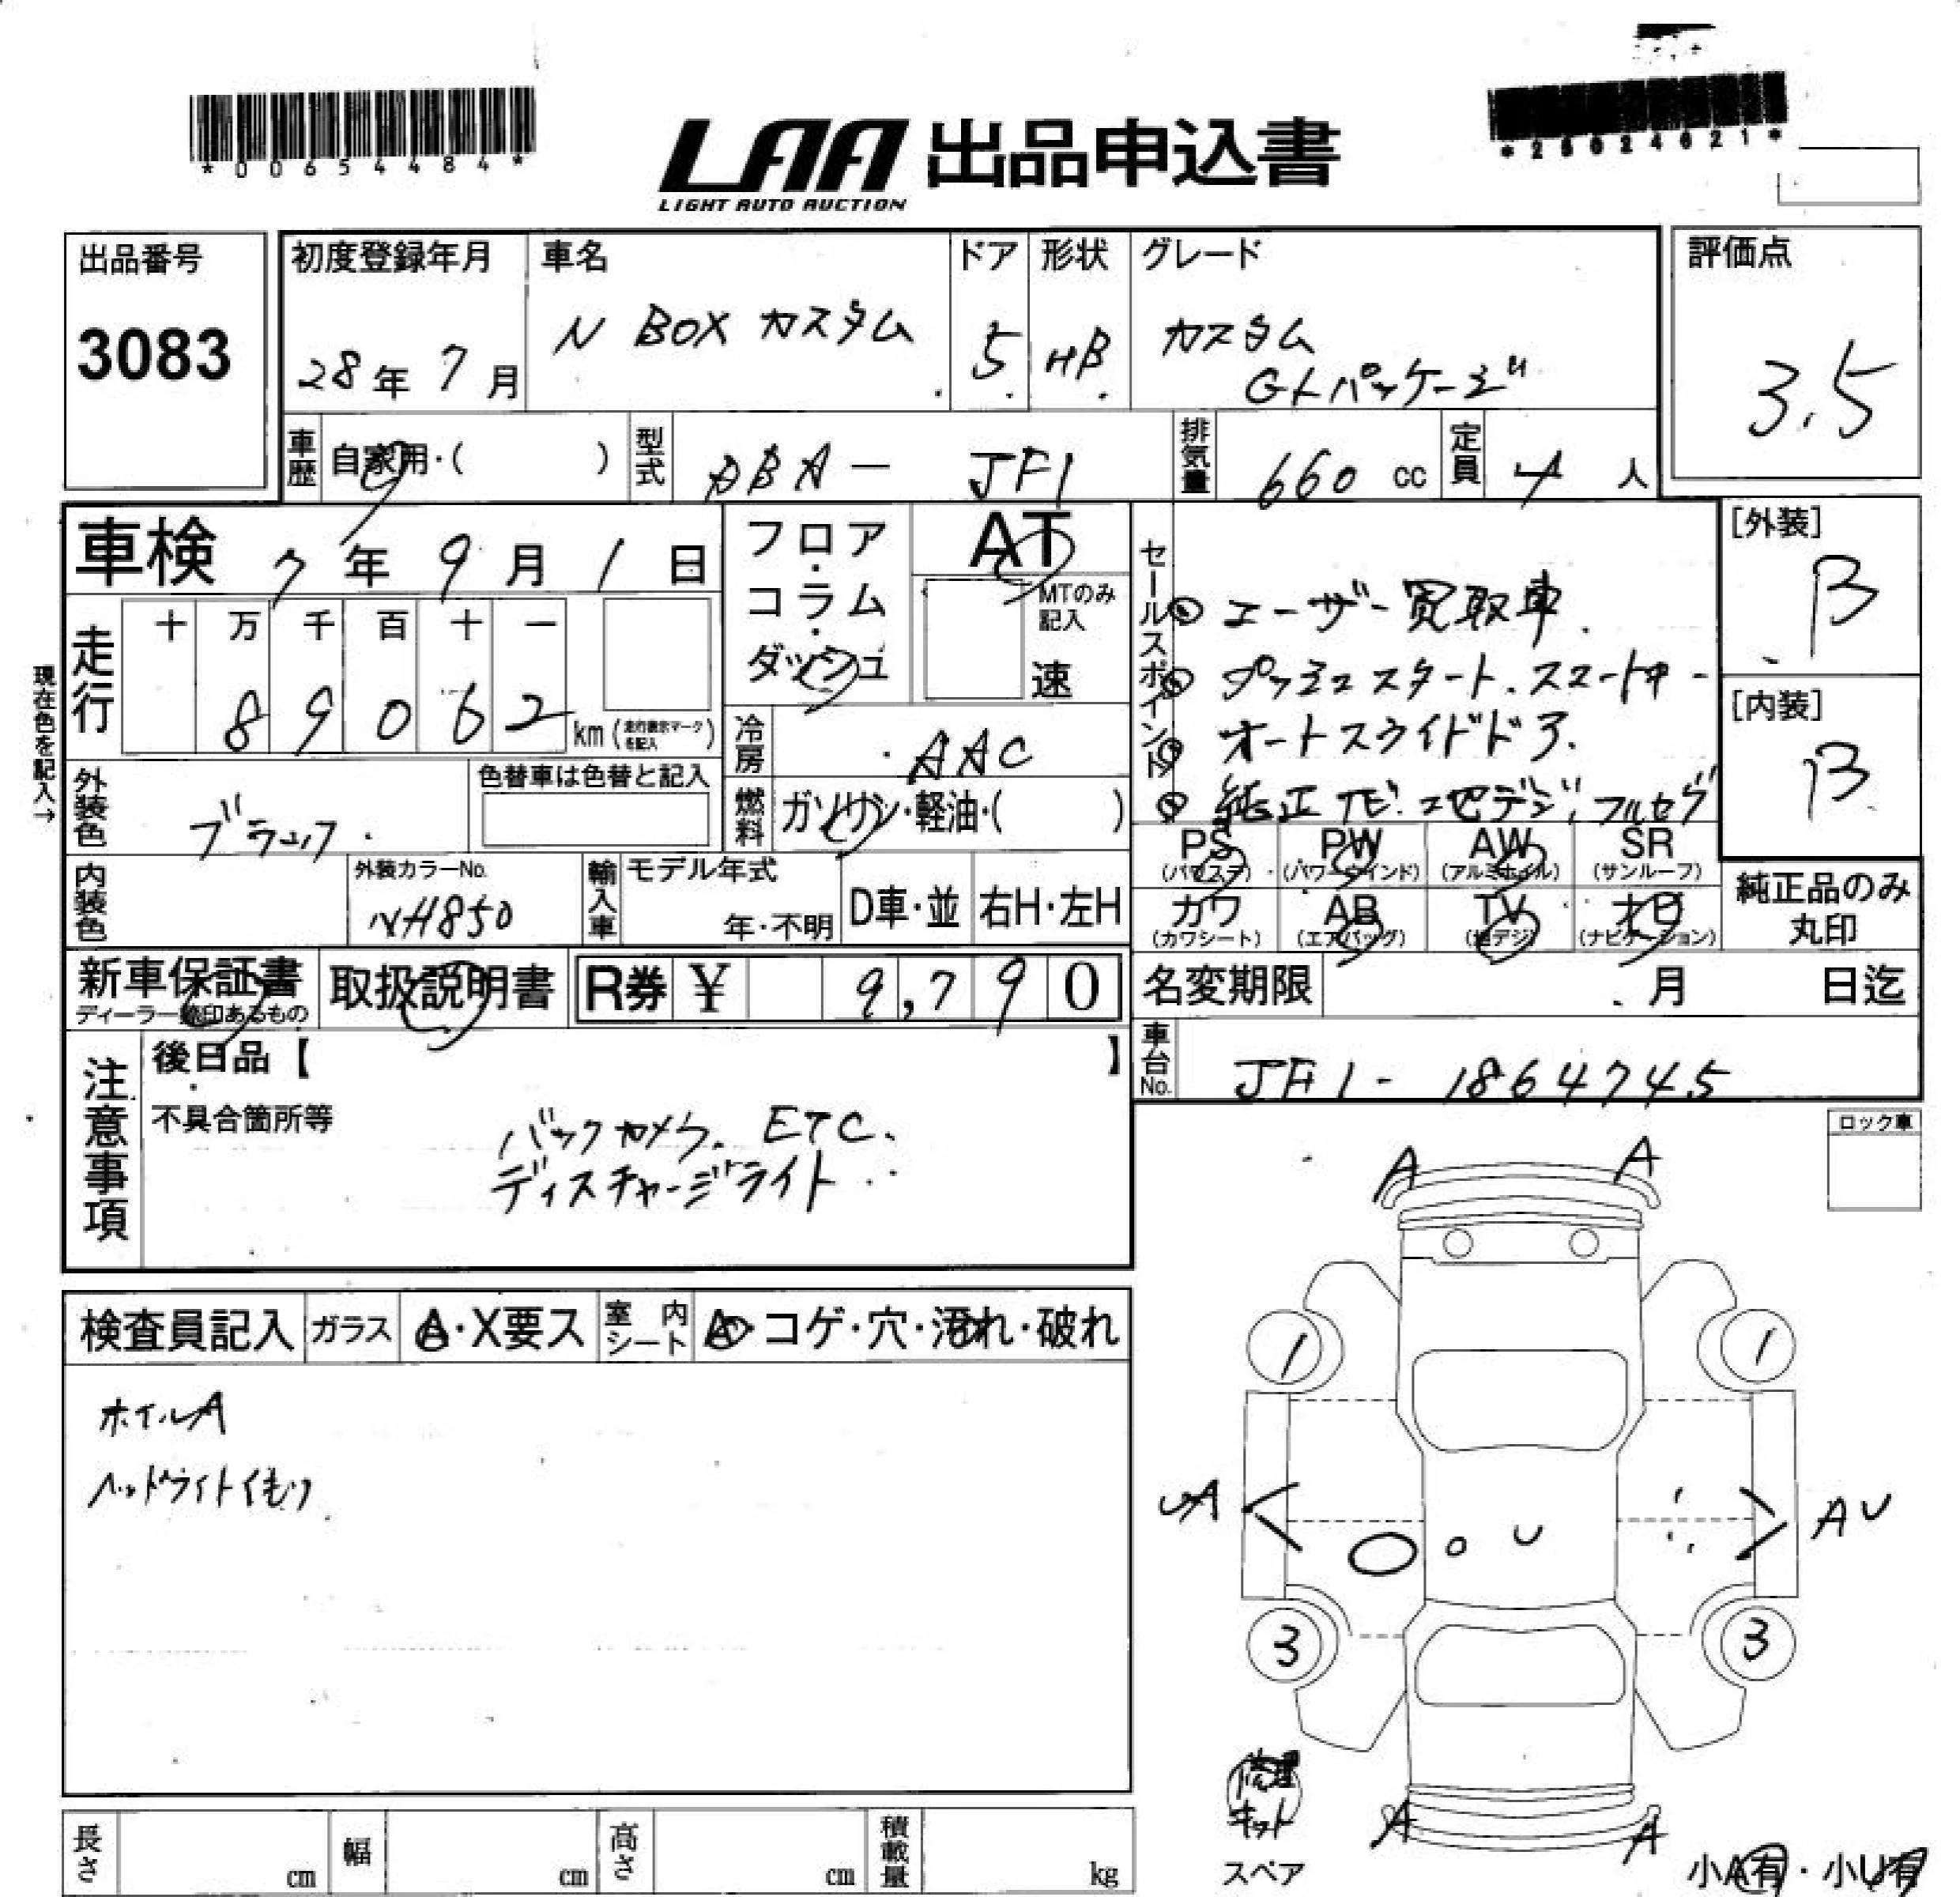 *00654484*
LAA 出品申込書
LIGHT AUTO AUCTION
*25024621*
出品番号
3083
初度登録年月
28年 7月
車名
N BOX カスタム
ドア
5
形状
HB
グレード
カスタム
G・Lパッケージ
評価点
3.5
車歴
自家用・( )
型式
DBA- JF1
排気量
660 cc
定員
4 人
車検 7年 9月 1日
フロア・コラム・ダッシュ
AT
MTのみ記入
速
セールスポイント
ユーザー買取車.
プッシュスタート.スマートキー
オートスライドドア.
純正ナビ.地デジ,フルセグ
[外装]
B
[内装]
B
現在色を記入→
走行
十 万 千 百 十 一
8 9 0 6 2
km (走行表示マークを記入)
冷房
AAC
燃料
ガソリン・軽油・( )
外装色
ブラック.
色替車は色替と記入
内装色
外装カラーNo.
NH850
輸入車
モデル年式
年・不明
D車・並
右H・左H
PS (パワステ)
PW (パワーウインド)
AW (アルミホイル)
SR (サンルーフ)
カワ (カワシート)
AB (エアバッグ)
TV (地デジ)
ナビ (ナビゲーション)
純正品のみ丸印
新車保証書
ディーラー捺印あるもの
取扱説明書
R券 ¥ 9,790
名変期限 月 日迄
車台No.
JF1- 1864745
注意事項
後日品【 】
不具合箇所等
バックカメラ. ETC.
ディスチャージライト
ロック車
検査員記入
ガラス
A・X要ス
室内シート
A・コゲ・穴・汚れ・破れ
ホイルA
ヘッドライトくもり
A A
1 1
UA
U
AU
3 3
A A
修理
キット
スペア
小A有・小U有
長さ cm
幅 cm
高さ cm
積載量 kg